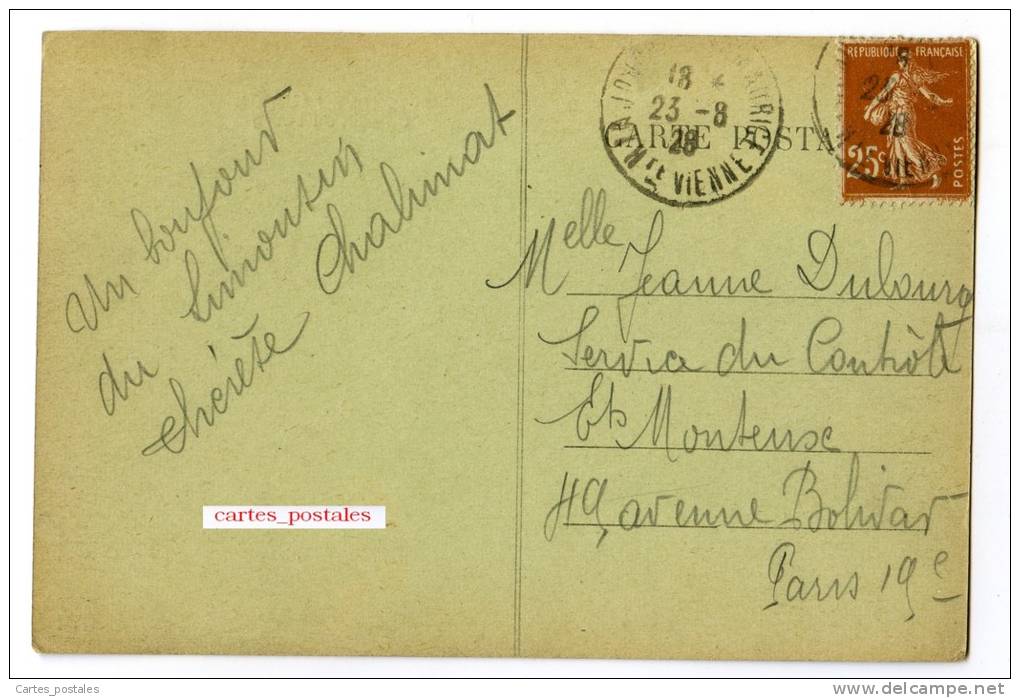 Un bonjour
du Limousin
Chalimat
cartes_postales
CARTE POSTA
18
23 -8
28
Hte VIENNE
REPUBLIQUE FRANÇAISE
25c
POSTES
23
28
Melle Jeanne Dubourg
Service du Contrôle
Ets Monteux
49 avenue Bolivar
Paris 19e
Cartes_postales
www.delcampe.net